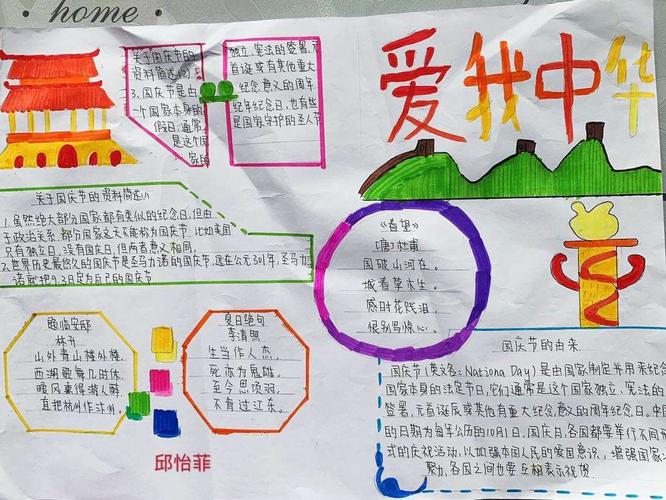 home
爱我中华
关于国庆节的
资料简选(2)
3、国庆节是由
一个国家本身的
假日,通常
是这个国
家的
独立、宪法的签署、元
首诞或有其他重大
纪念意义的周年
纪年纪念日,也有些
是国家守护的圣人节
关于国庆节的资料简选(1)
1.虽然绝大部分国家都有类似的纪念日,但由
于政治关系,部分国家又不能称为国庆节,比如美国
只有独立日,没有国庆日,但两者意义相同。
2.世界历史最悠久的国庆节是圣马力诺的国庆节,远在公元301年,圣马力
诺就把9.3日定为自己的国庆节
《春望》
[唐]杜甫
国破山河在。
城春草木生。
感时花践泪。
恨别鸟惊心。
题临安邸
林升
山外青山楼外楼。
西湖歌舞几时休。
暖风熏得游人醉。
直把杭州作汴州。
夏日绝句
李清照
生当作人杰。
死亦为鬼雄。
至今思项羽。
不肯过江东。
邱怡菲
国庆节的由来
国庆节(英文名:Nationa Day)是由国家制定并用来纪念
国家本身的法定节日,它们通常是这个国家独立、宪法的
签署、元首诞辰或其他有重大纪念意义的周年纪念日。中国
的日期为每年公历的10月1日。国庆日,各国都要举行不同形
式的庆祝活动,以加强本国人民的爱国意识,增强国家
聚力。各国之间也要互相表示祝贺。